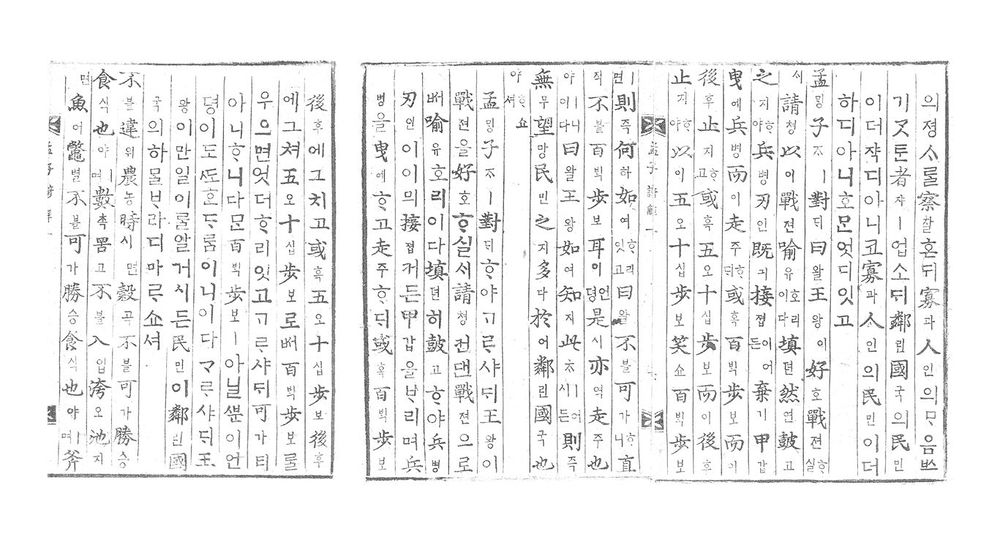 의졍ᄉᆞᄅᆞᆯ察찰혼ᄃᆡ寡과人인의ᄆᆞᄋᆞᆷᄡᅳ
기ᄀᆞᆺᄐᆞᆫ者쟈ㅣ업소ᄃᆡ鄰린國국의民민
이더쟉디아니코寡과人인의民민이더
하디아니호ᄆᆞᆫ엇디잇고
孟ᄆᆡᆼ子ᄌᆞㅣ對ᄃᆡ曰왈王왕이好호戰젼ᄒᆞ실
ᄉᆡ請쳥以이戰젼喩유호리이다填뎐然연鼓고
之지ᄒᆞ야兵병刃인既긔接졉이어든棄기甲갑
曳예兵병而이走주호ᄃᆡ或혹百ᄇᆡᆨ步보而이
後후止지ᄒᆞ고或혹五오十십步보而이後후
止지ᄒᆞ야以이五오十십步보笑쇼百ᄇᆡᆨ步보
孟子諺解一
ㅣ면則즉何하如여ᄒᆞ리잇고曰왈不불可가ᄒᆞ니直
적不불百ᄇᆡᆨ步보耳이언뎡是시亦역走주也
야ㅣ니이다曰왈王왕如여知지此ᄎᆞㅣ시든則즉
無무望망民민之지多다於어鄰린國국也
야ᄒᆞ쇼셔
孟ᄆᆡᆼ子ᄌᆞㅣ對ᄃᆡᄒᆞ야ᄀᆞᄅᆞ샤ᄃᆡ王왕이
戰젼을好호ᄒᆞ실ᄉᆡ請쳥컨댄戰젼으로
ᄡᅥ喩유호리이다填뎐히鼓고ᄒᆞ야兵병
刃인이이믜接졉거든甲갑을ᄇᆞ리며兵
병을曳예ᄒᆞ고走주호ᄃᆡ或혹百ᄇᆡᆨ步보
後후에그치고或혹五오十십步보後후
에그쳐五오十십步보로ᄡᅥ百ᄇᆡᆨ步보ᄅᆞᆯ
우으면엇더ᄒᆞ리잇고ᄀᆞᄅᆞ샤ᄃᆡ可가티
아니ᄒᆞ니다ᄆᆞᆫ百ᄇᆡᆨ步보ㅣ아닐ᄲᅮᆫ이언
뎡이도ᄯᅩᄒᆞᆫ ᄃᆞ롬이니이다ᄀᆞᄅᆞ샤ᄃᆡ王
왕이만일이ᄅᆞᆯ알거시든民민이鄰린國
국의하몰ᄇᆞ라디마ᄅᆞ쇼셔
不불違위農농時시면穀곡不불可가勝승
食식也야ㅣ며數촉罟고不불入입洿오池지
면魚어鼈별不불可가勝승食식也야ㅣ며斧
孟子諺解一